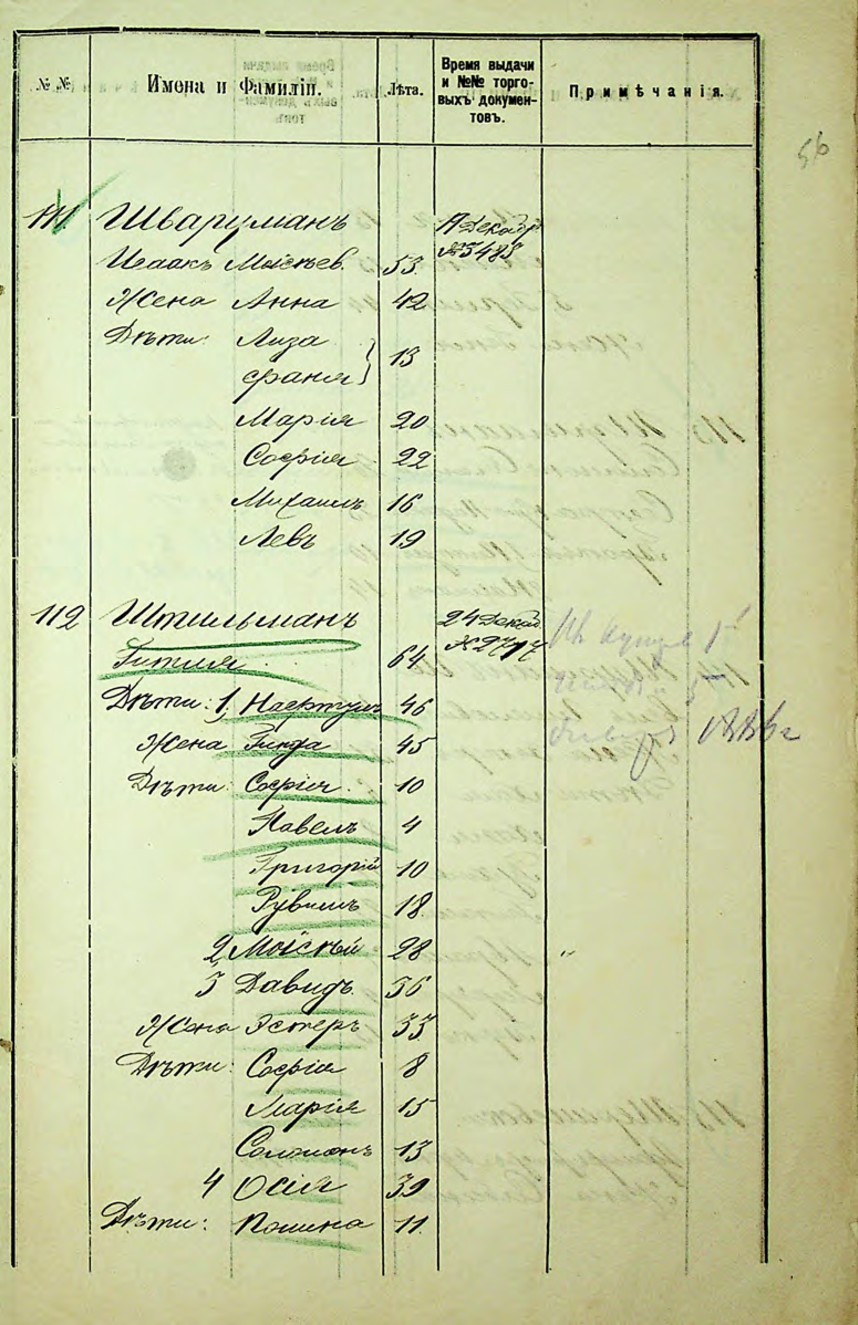 № №
Имена и Фамиліи.
Лѣта.
Время выдачи
и №№ торго-
выхъ докумен-
товъ.
Примѣчанія.
56
111 Шварцманъ 17 Декабр
Исаакъ Моисѣев. 53 № 5485
Жена Анна 42
Дѣти: Лиза
Франя } 13
Марія 20
Софія 22
Михаилъ 16
Левъ 19
112 Штильманъ 24 Декаб.
Гитля 64 № 2717
Дѣти: 1, Нафтулъ 46
Жена Гинда 45 1886 г
Дѣти: Софія 10
Павелъ 4
Григорій 10
Рувимъ 18
2 Моисѣй 28
3 Давидъ 36
Жена Эстеръ 33
Дѣти: Софія 8
Марія 15
Соломонъ 13
4 Осія 39
Дѣти: Полина 11